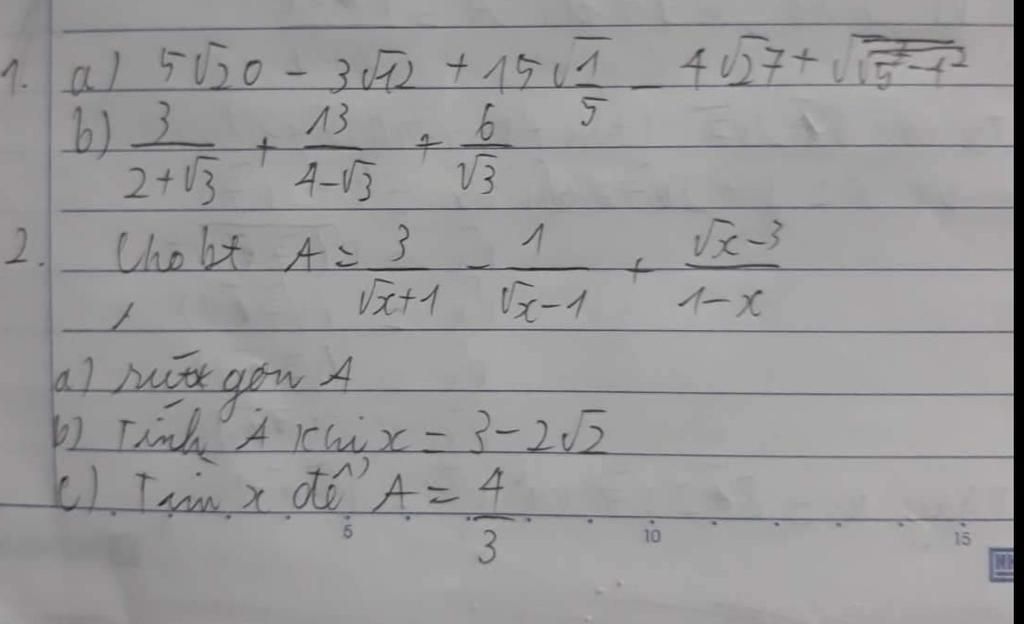 1. a) 5√20 - 3√12 + 15√1/5 - 4√27 +
b) 3/(2+√3) + 13/(4-√3) + 6/√3
2. Cho bt A = 3/(√x+1) - 1/(√x-1) + (√x-3)/(1-x)
a) rút gọn A
b) Tính A khi x = 3-2√2
c) Tìm x để A = 4/3
5 10 15